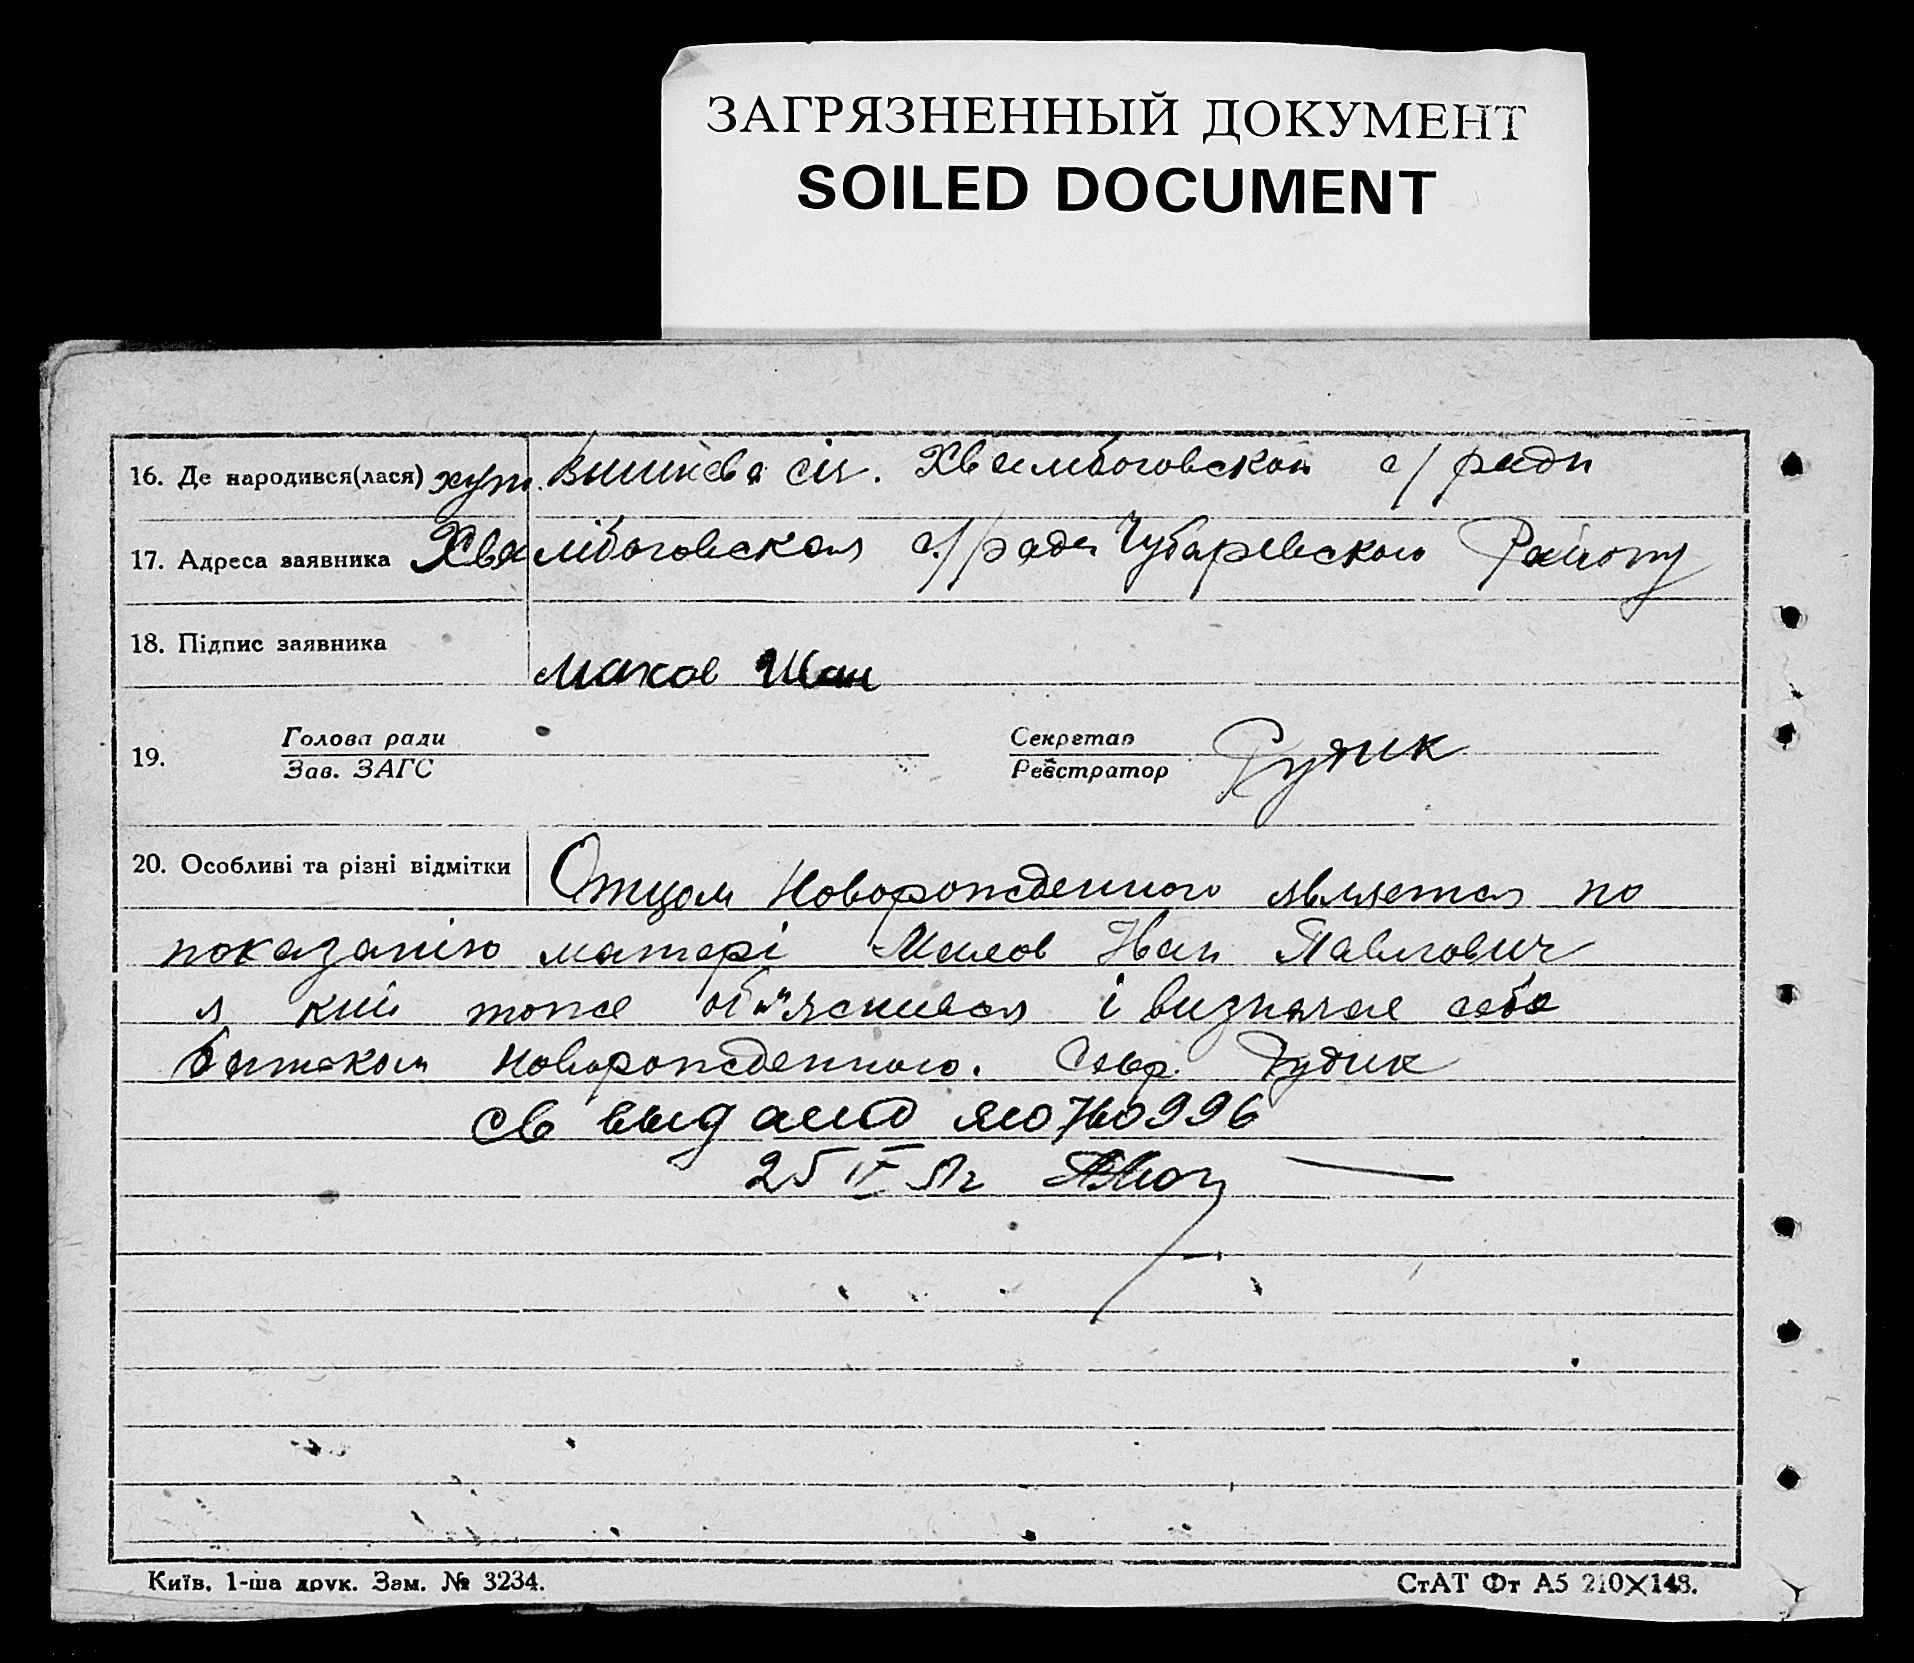 ЗАГРЯЗНЕННЫЙ ДОКУМЕНТ
SOILED DOCUMENT
16. Де народився(лася) хут. с/ ради
17. Адреса заявника с/ради Чубаревского Району
18. Підпис заявника
Махов Иван
19. Голова ради
Зав. ЗАГС
Секретар
Реєстратор
Рудик
20. Особливі та різні відмітки Отцом новорожденного является по
показанію матері Махов Иван Павлович
я кий тоже і визначає себе
батьком новорожденного. Секр. Рудик
св выдано
25 IX
Київ, 1-ша друк. Зам. № 3234.
СтАТ Фт А5 210×148.